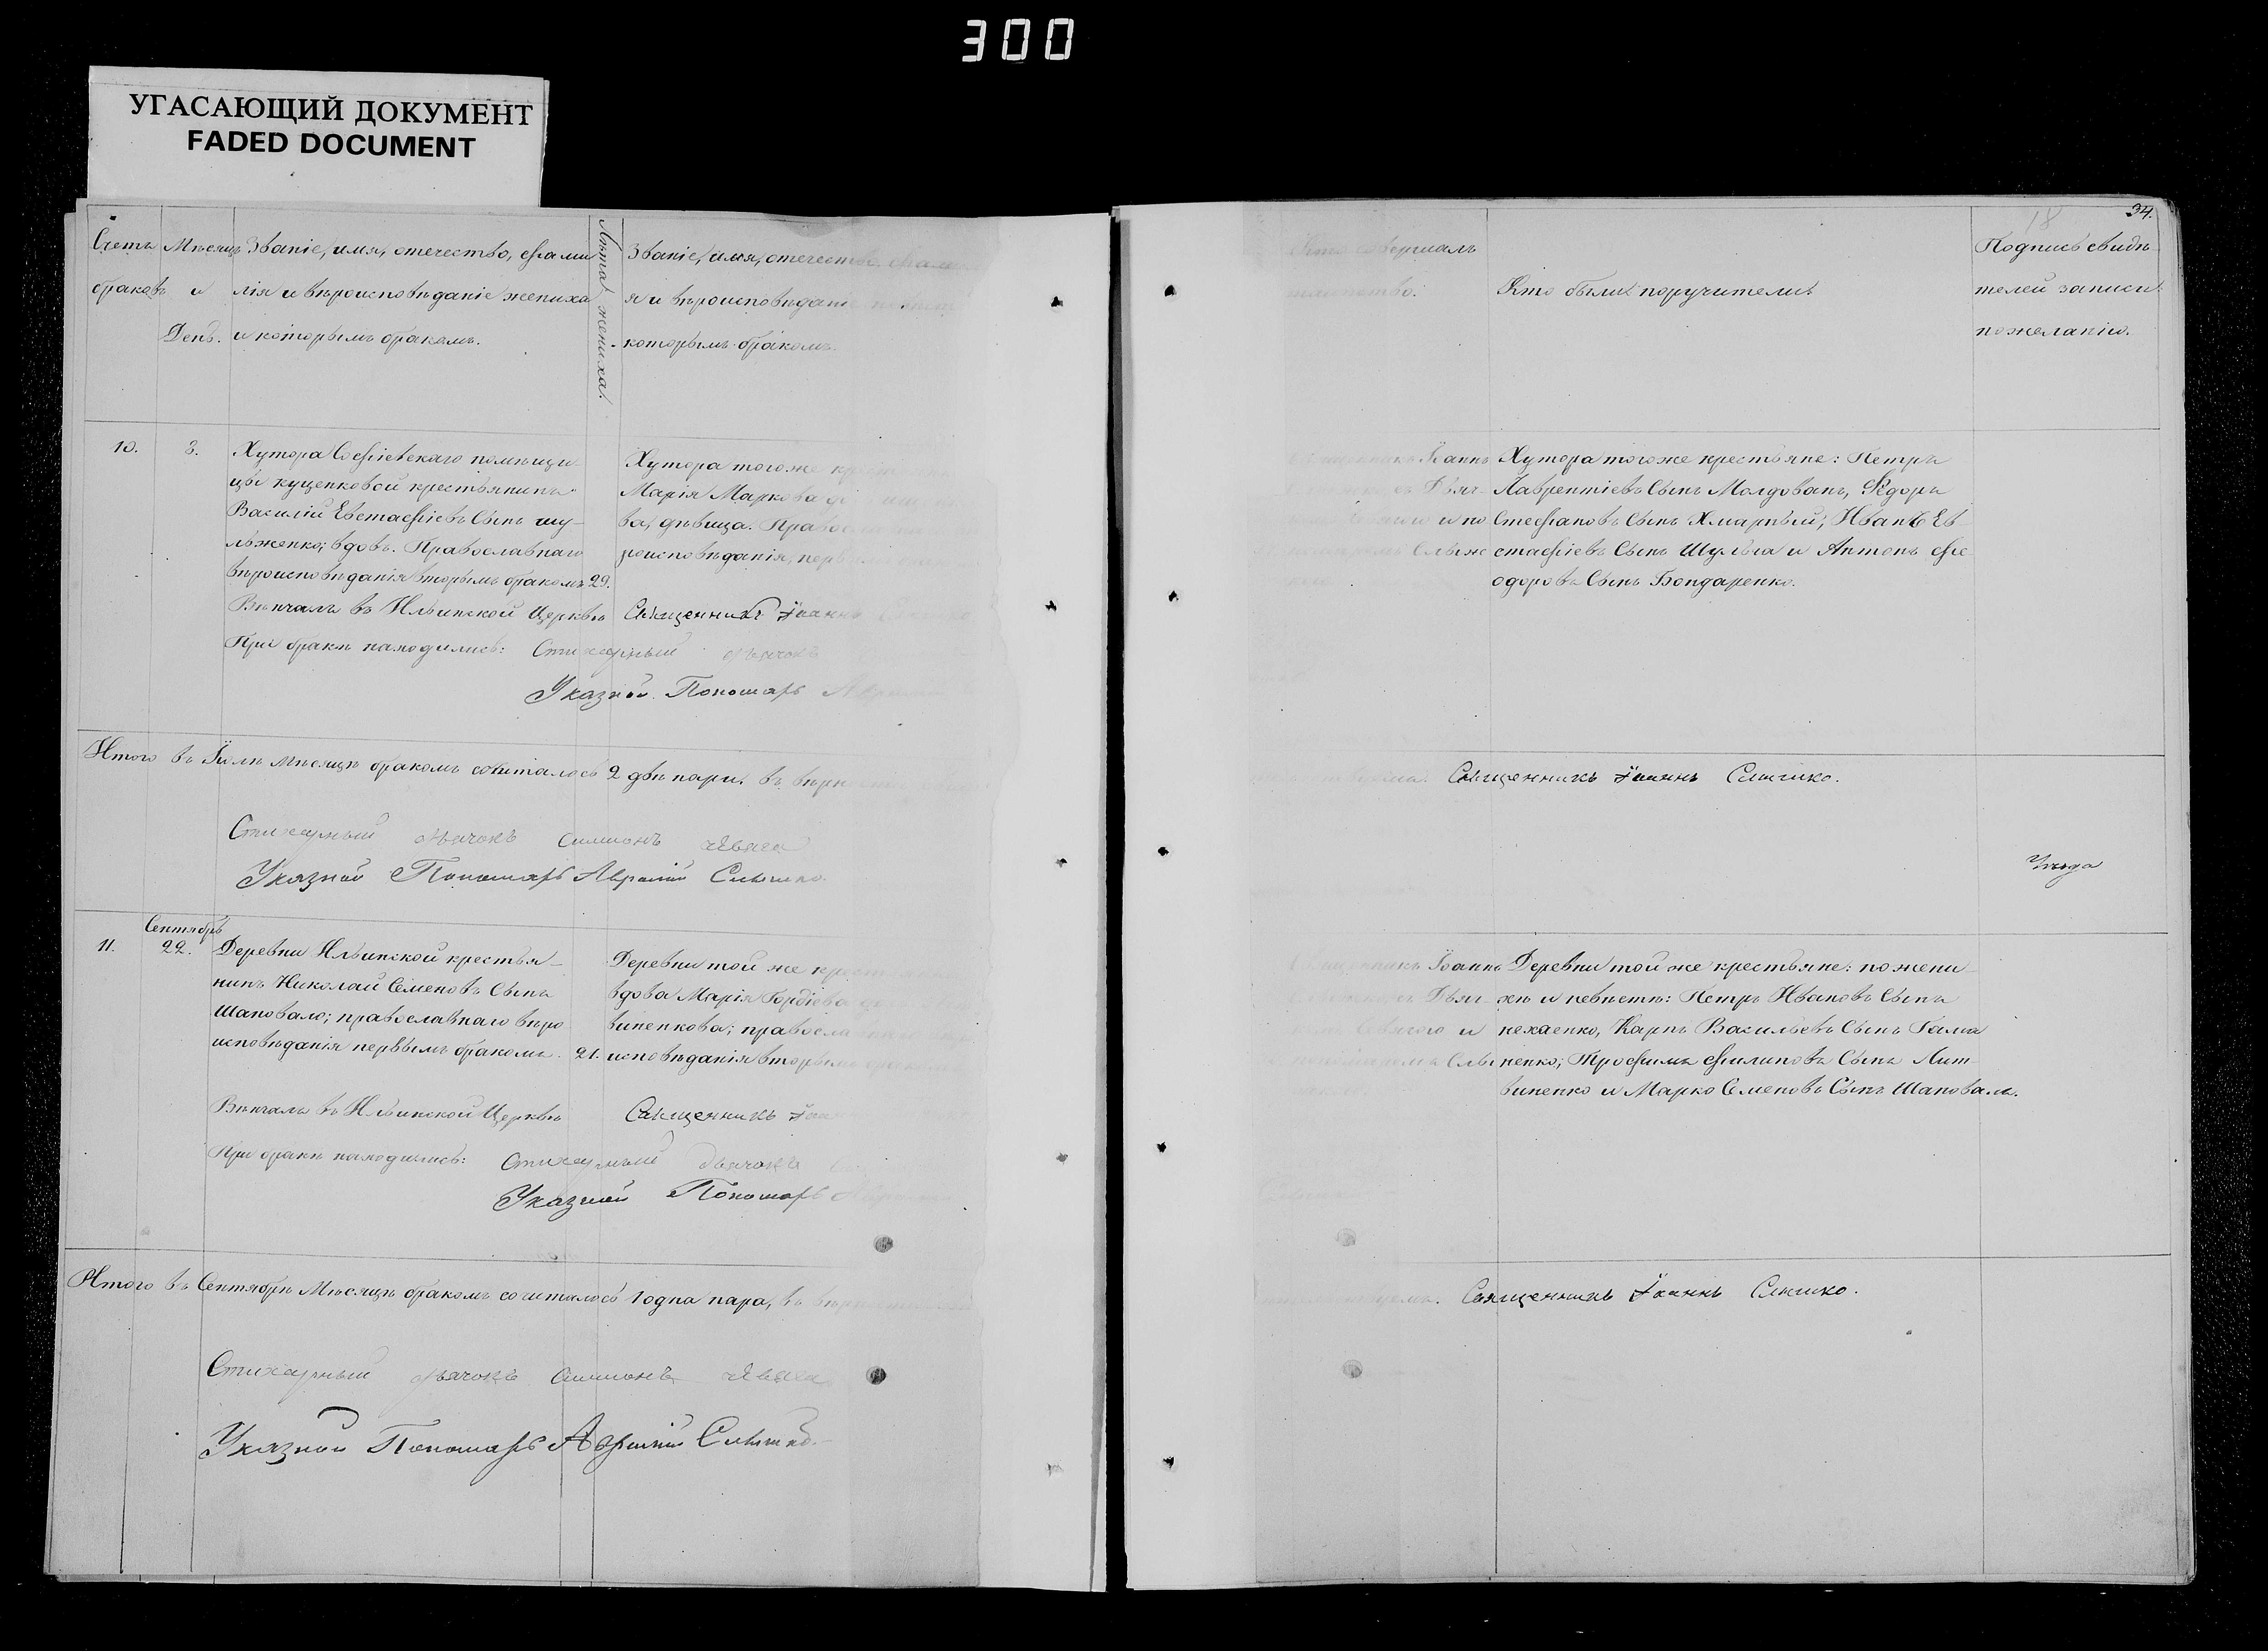 300
УГАСАЮЩИЙ ДОКУМЕНТ
FADED DOCUMENT
Счетъ браковъ
Мѣсяцъ и День.
Званіе, имя, отечество, фами
лія и вѣроисповѣданіе жениха
и которымъ бракомъ.
Лѣта жениха.
Званіе, имя, отечество
я и вѣроисповѣдані
которымъ бракомъ.
10.
8.
Хутора Софіевскаго помѣщи
цы Куценковой крестьянинъ
Василій Евстафіевъ Сынъ Шу-
льженко; вдовъ. Православнаго
вѣроисповѣданія вторымъ бракомъ
29.
Хутора того же
Марія Маркова
ва, дѣвица. Право
роисповѣданія, перв
Вѣнчалъ въ Ильинской Церквѣ Священникъ Іоаннъ
При бракѣ находились: Стихарный дьячокъ
Указной Пономарь
Итого въ Іюлѣ мѣсяцѣ бракомъ сочиталось 2 двѣ пари. въ
Стихарный дьячокъ Симионъ
Указной Пономарь Аврамій Слышко.
11.
Сентябрь
22.
Деревни Ильинской крестья-
нинъ Николай Семеновъ Сынъ
Шаповало; православнаго вѣро
исповѣданія первымъ бракомъ.
21.
Деревни той же
вдова Марія Гордіева
виненкова; правосла
исповѣданія вторымъ
Вѣнчалъ въ Ильинской Церквѣ Священникъ
При бракѣ находились: Стихарный дьячокъ
Указной Пономарь
Итого въ Сентябрѣ Мѣсяцѣ бракомъ сочиталось 1 одна пара, въ
Стихарный дьячокъ Симионъ
Указной Пономарь Аврамій Слышко.
18
34.
Кто совершалъ
таинство.
Кто были поручители.
Подпись свидѣ
телей записи
по желанію.
Іоаннъ
Дьяч-
и по
Хутора того же крестьяне: Петръ
Лаврентіевъ Сынъ Молдованъ, Ѳедоръ
Стефановъ Сынъ Хмарный; Иванъ Ев-
стафіевъ Сынъ Шульга и Антонъ Фе
одоровъ Сынъ Бондаренко.
Священникъ Іоаннъ Слышко.
Іоаннъ
Дьяч-
и
Деревни той же крестьяне: по жени-
хѣ и невѣстѣ: Петръ Ивановъ Сынъ
Нехаенко, Карпъ Васильевъ Сынъ Гама
ненко; Трофимъ Филиповъ Сынъ Лит-
виненко и Марко Семеновъ Сынъ Шаповалъ.
Священникъ Іоаннъ Слышко.